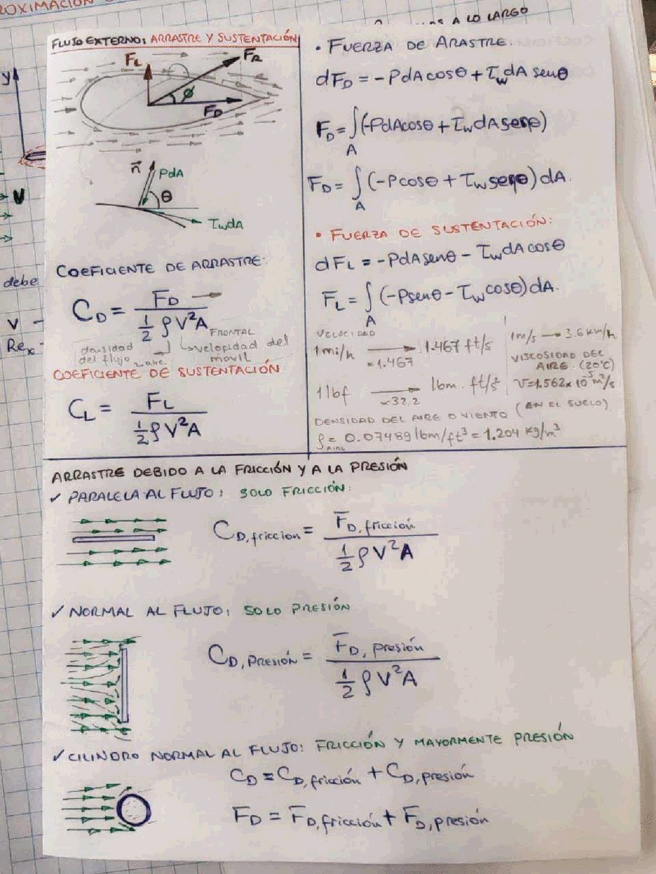 ROXIMACIÓN
A LO LARGO
FLUJO EXTERNO: ARRASTRE Y SUSTENTACIÓN
FL
FR
ϕ
FD
n⃗
PdA
θ
τwdA
COEFICIENTE DE ARRASTRE:
CD = FD / (1/2 ρV²A)
FRONTAL
densidad del flujo
velocidad del movil
COEFICIENTE DE SUSTENTACIÓN
CL = FL / (1/2 ρV²A)
• FUERZA DE ARASTRE.
dFD = -PdAcosθ + τwdA senθ
FD = ∫A (-PdAcosθ + τwdAsenθ)
FD = ∫A (-Pcosθ + τwsenθ)dA.
• FUERZA DE SUSTENTACIÓN:
dFL = -PdAsenθ - τwdAcosθ
FL = ∫A (-Psenθ - τwcosθ)dA.
VELOCIDAD
1mi/h → 1.467 ft/s
×1.467
1m/s → 3.6km/h
VISCOSIDAD DEL AIRE (20°C)
1lbf → lbm. ft/s²
×32.2
ν=1.562×10⁻⁵ m²/s
DENSIDAD DEL AIRE O VIENTO (EN EL SUELO)
ρ = 0.07489 lbm/ft³ = 1.204 kg/m³
y
V
debe
V -
Rex
ARRASTRE DEBIDO A LA FRICCIÓN Y A LA PRESIÓN
✓ PARALELA AL FLUJO: SOLO FRICCIÓN:
CD,friccion = FD,fricción / (1/2 ρV²A)
✓ NORMAL AL FLUJO: SOLO PRESIÓN
CD,PRESIÓN = FD, presión / (1/2 ρV²A)
✓ CILINDRO NORMAL AL FLUJO: FRICCIÓN Y MAYORMENTE PRESIÓN
CD = CD,fricción + CD,presión
FD = FD,fricción + FD,presión